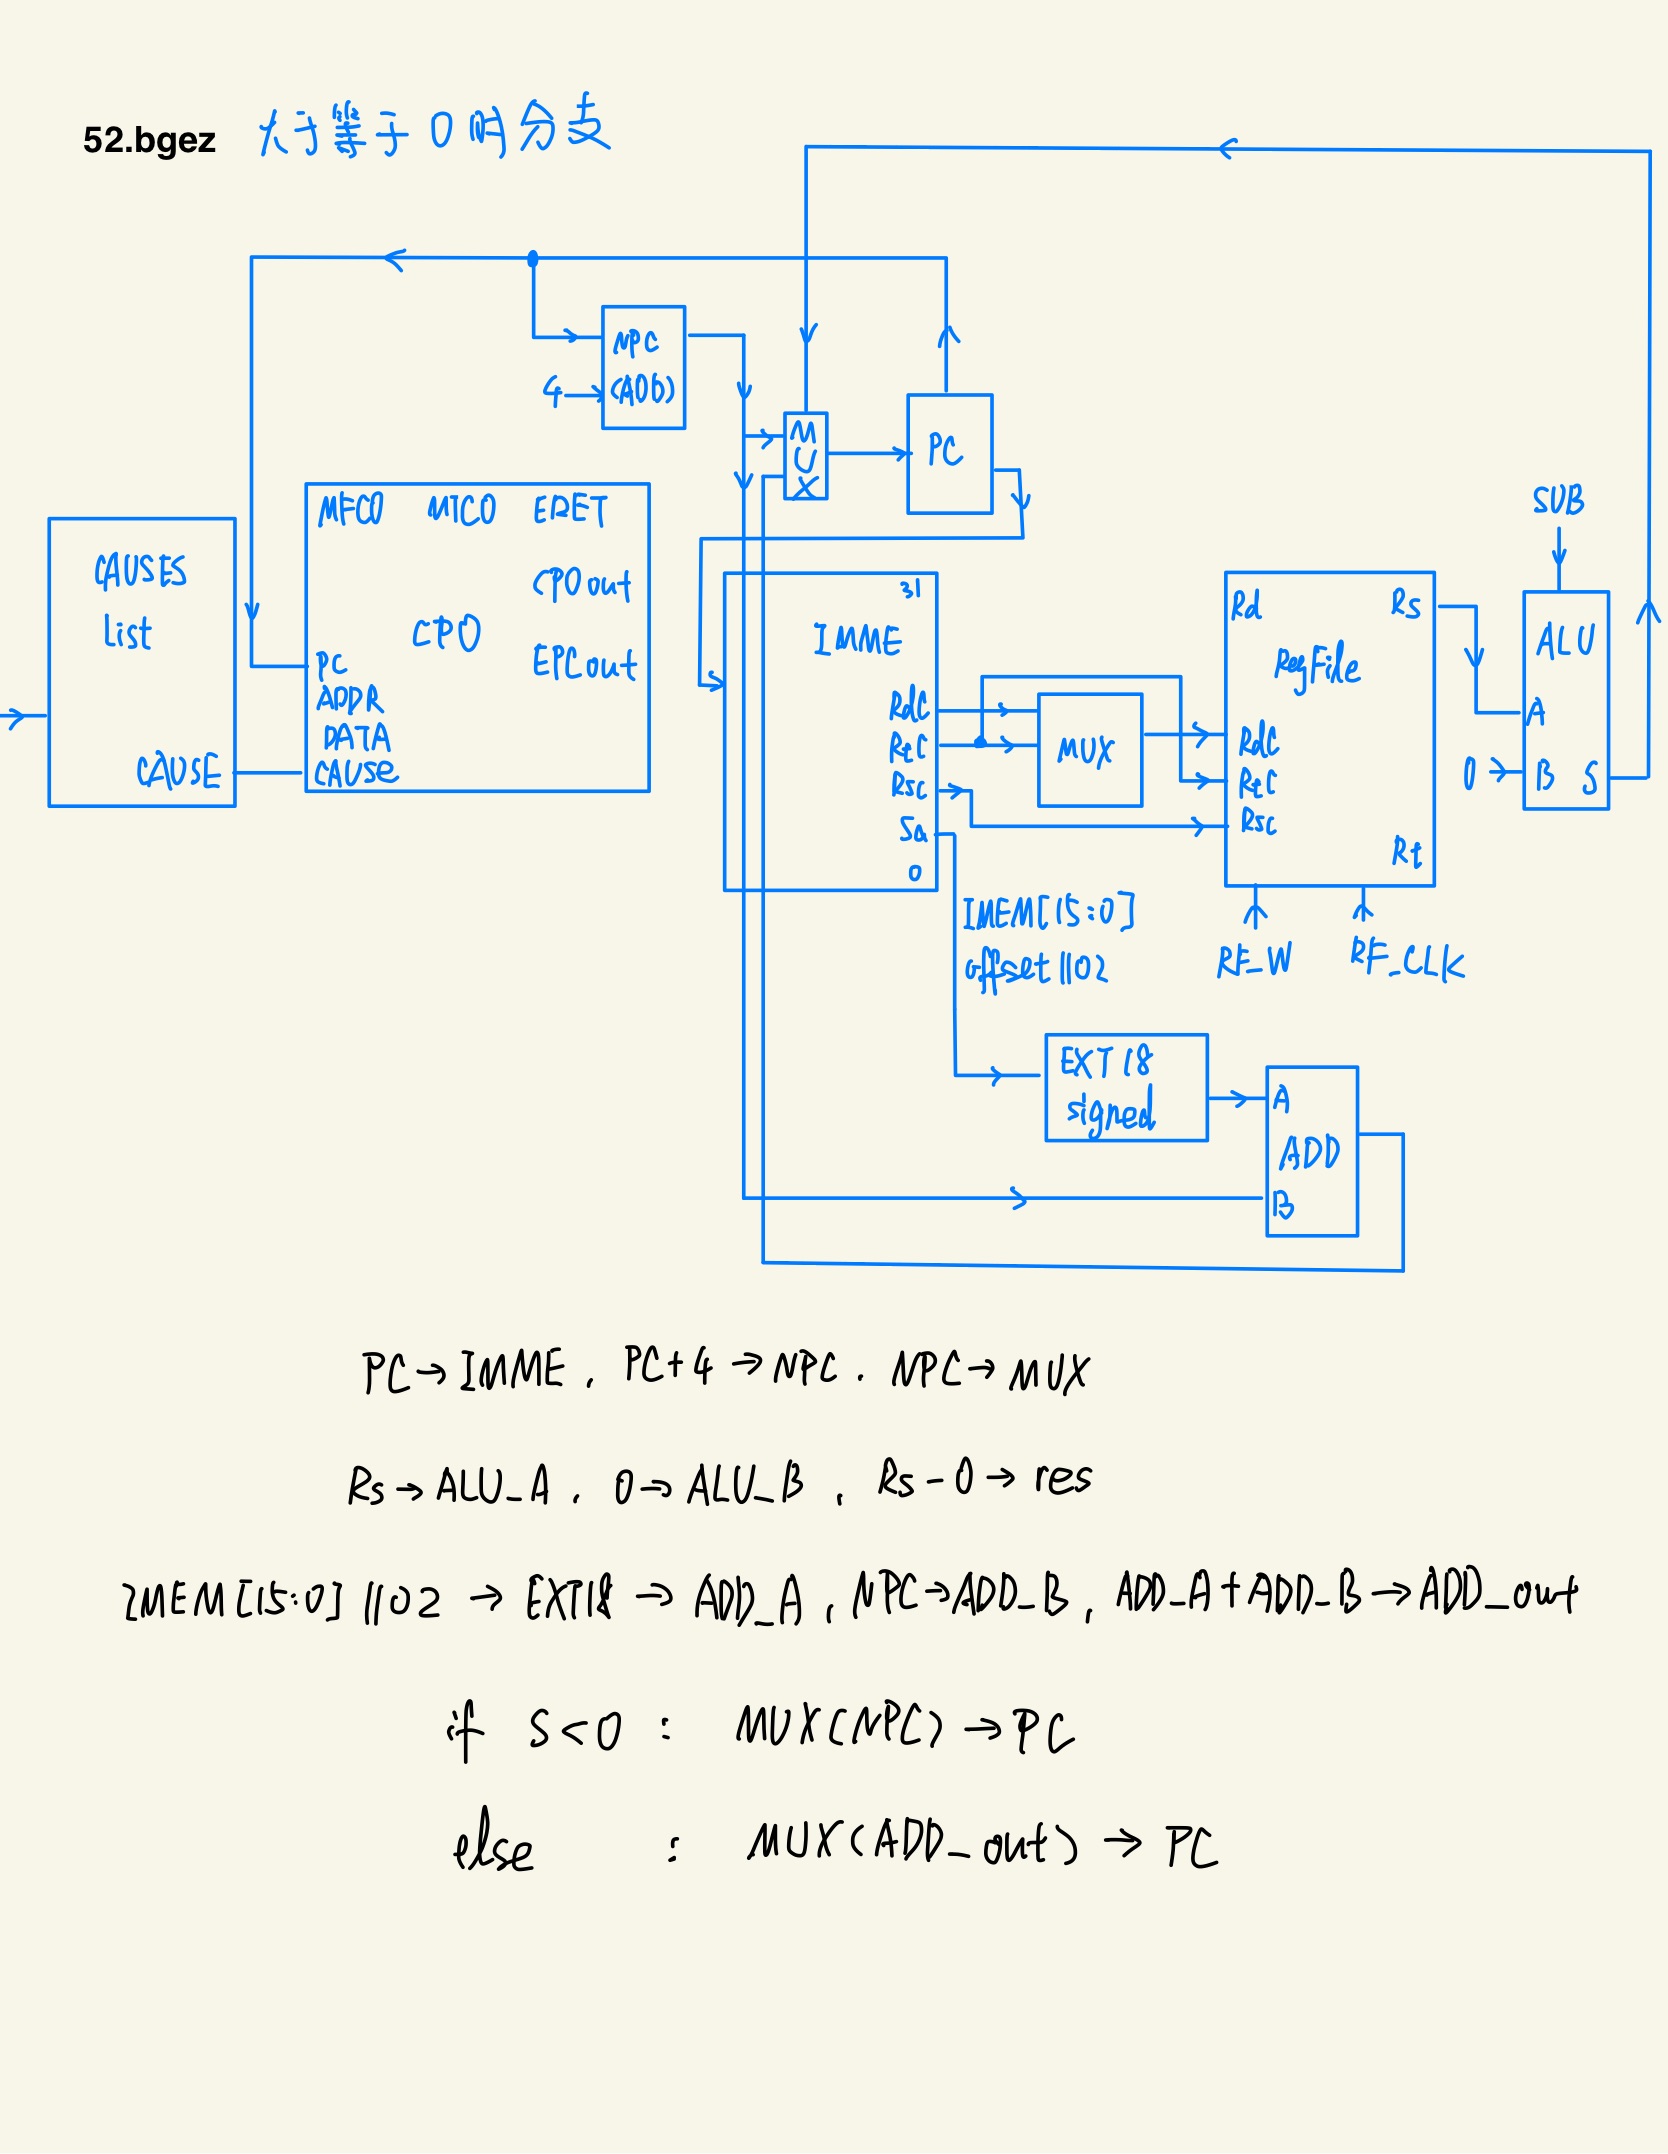 52.bgez 大于等于0时分支
NPC
4 (ADD)
M
U
X
PC
CAUSES
List
CAUSE
MFC0 MTC0 ERET
CP0out
CP0
EPCout
PC
ADDR
DATA
CAUSe
31
IMME
RdC
RtC
Rsc
Sa
0
MUX
Rd Rs
RegFile
RdC
RtC
Rsc
Rt
RF_W RF_CLK
SUB
ALU
A
0 B S
IMEM[15:0]
offset||02
EXT18
signed
A
ADD
B
PC→IMME, PC+4→NPC, NPC→MUX
Rs→ALU_A, 0→ALU_B, Rs-0→res
IMEM[15:0]||02→EXT18→ADD_A, NPC→ADD_B, ADD_A+ADD_B→ADD_out
if S<0: MUX(NPC)→PC
else : MUX(ADD_out)→PC